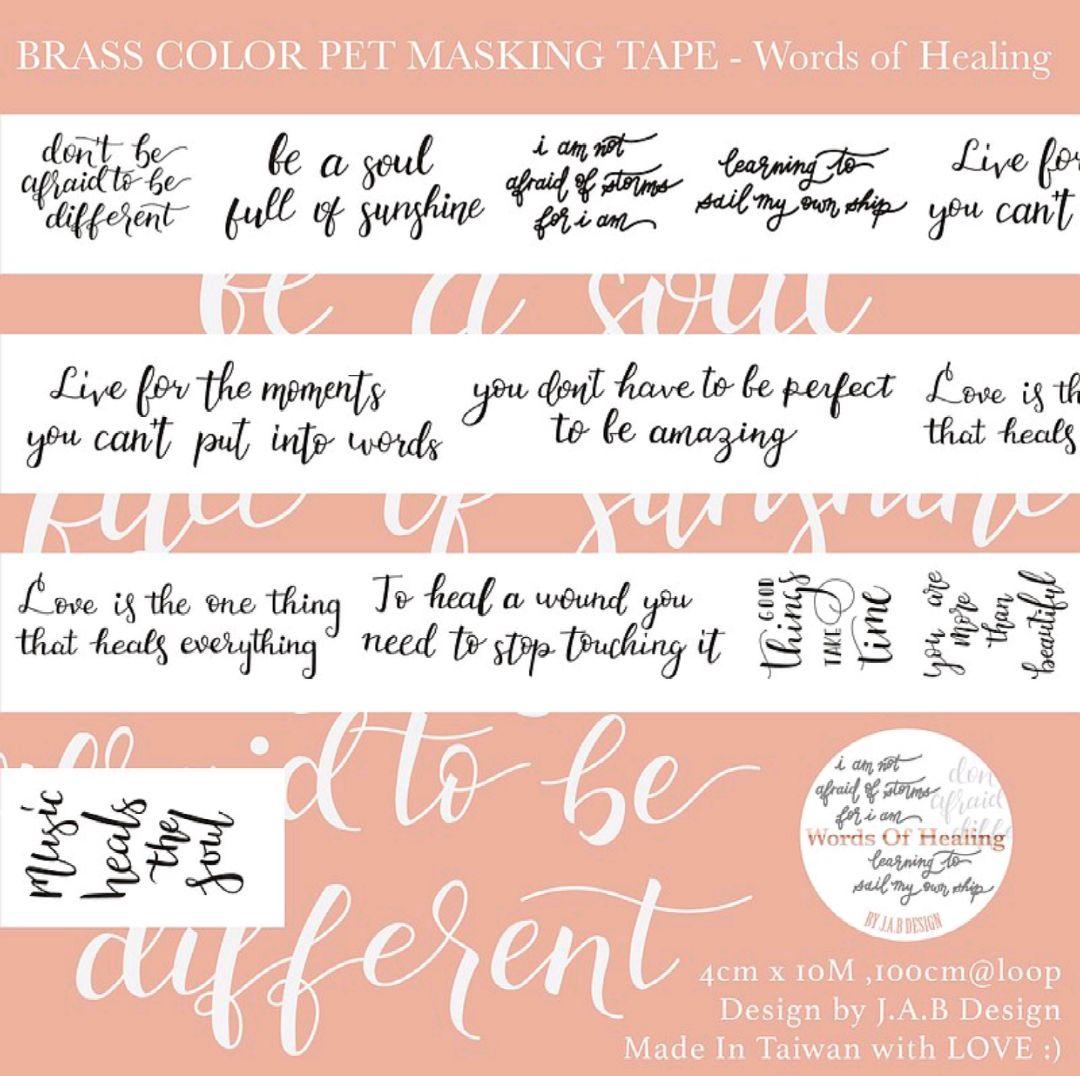 BRASS COLOR PET MASKING TAPE - Words of Healing
don't be
afraid to be
different
be a soul
full of sunshine
i am not
afraid of storms
for i am
learning to
sail my own ship
Live for
you can't
be a soul
Live for the moments
you can't put into words
you don't have to be perfect
to be amazing
Love is th
that heals
full of sunshine
Love is the one thing
that heals everything
To heal a wound you
need to stop touching it
GOOD
things
TAKE
time
you are
more
than
beautiful
afraid to be
different
music
heals
the
soul
i am not
afraid of storms
for i am
don
afraid
diffe
Words Of Healing
learning to
sail my own ship
BY J.A.B DESIGN
4cm x 10M ,100cm@loop
Design by J.A.B Design
Made In Taiwan with LOVE :)